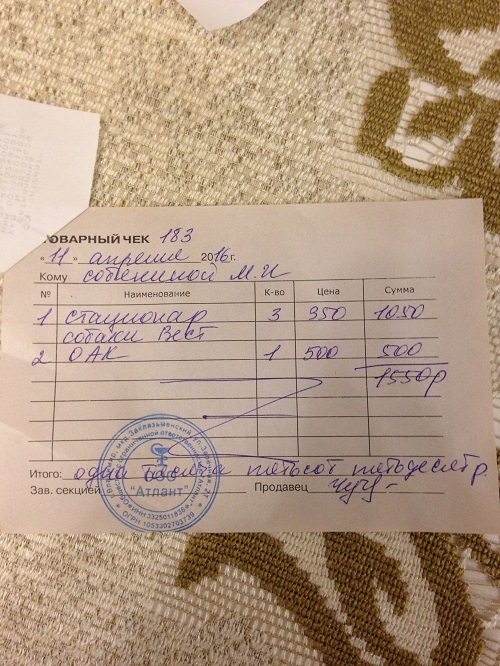 ТОВАРНЫЙ ЧЕК 183
"11" апреля 2016 г.
Кому собениной М.И
№ Наименование К-во Цена Сумма
1 стационар 3 350 1050
собаки Вест
2 ОАК 1 500 500
1550р
Итого: одна тысяча пятьсот пятьдесят р.
Зав. секцией Продавец
ООО
"Атлант"
ОГРН 1053302703739